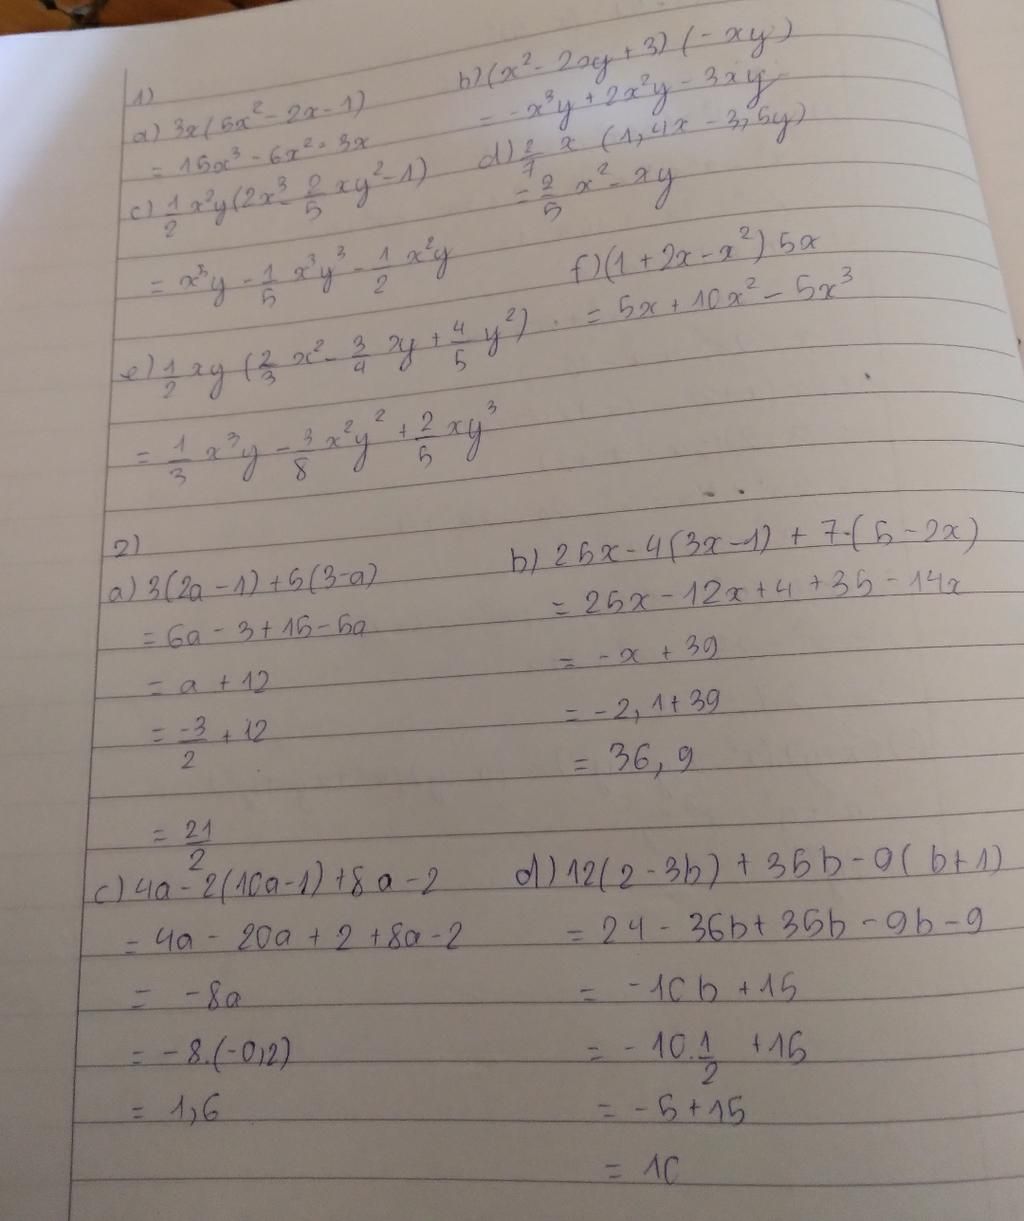 1)
a) 3x(5x² - 2x - 1)
= 15x³ - 6x² - 3x
b) (x² - 2xy + 3) (-xy)
= -x³y + 2x²y - 3xy
c) 1/2 x²y(2x³ - 2/5 xy² - 1)
= x⁵y - 1/5 x³y³ - 1/2 x²y
d) 2/7 x (1,4x - 3,5y)
= 2/5 x² - xy
e) 1/2 xy (2/3 x² - 3/4 xy + 4/5 y²)
= 1/3 x³y - 3/8 x²y² + 2/5 xy³
f) (1 + 2x - x²) 5x
= 5x + 10x² - 5x³
2)
a) 3(2a - 1) + 5(3-a)
= 6a - 3 + 15 - 5a
= a + 12
= -3/2 + 12
= 21/2
b) 25x - 4(3x - 1) + 7.(5 - 2x)
= 25x - 12x + 4 + 35 - 14x
= -x + 39
= -2,1 + 39
= 36,9
c) 4a - 2(10a - 1) + 8a - 2
= 4a - 20a + 2 + 8a - 2
= -8a
= -8.(-0,2)
= 1,6
d) 12(2 - 3b) + 35b - 9(b + 1)
= 24 - 36b + 35b - 9b - 9
= -10b + 15
= -10.1/2 + 15
= -5 + 15
= 10